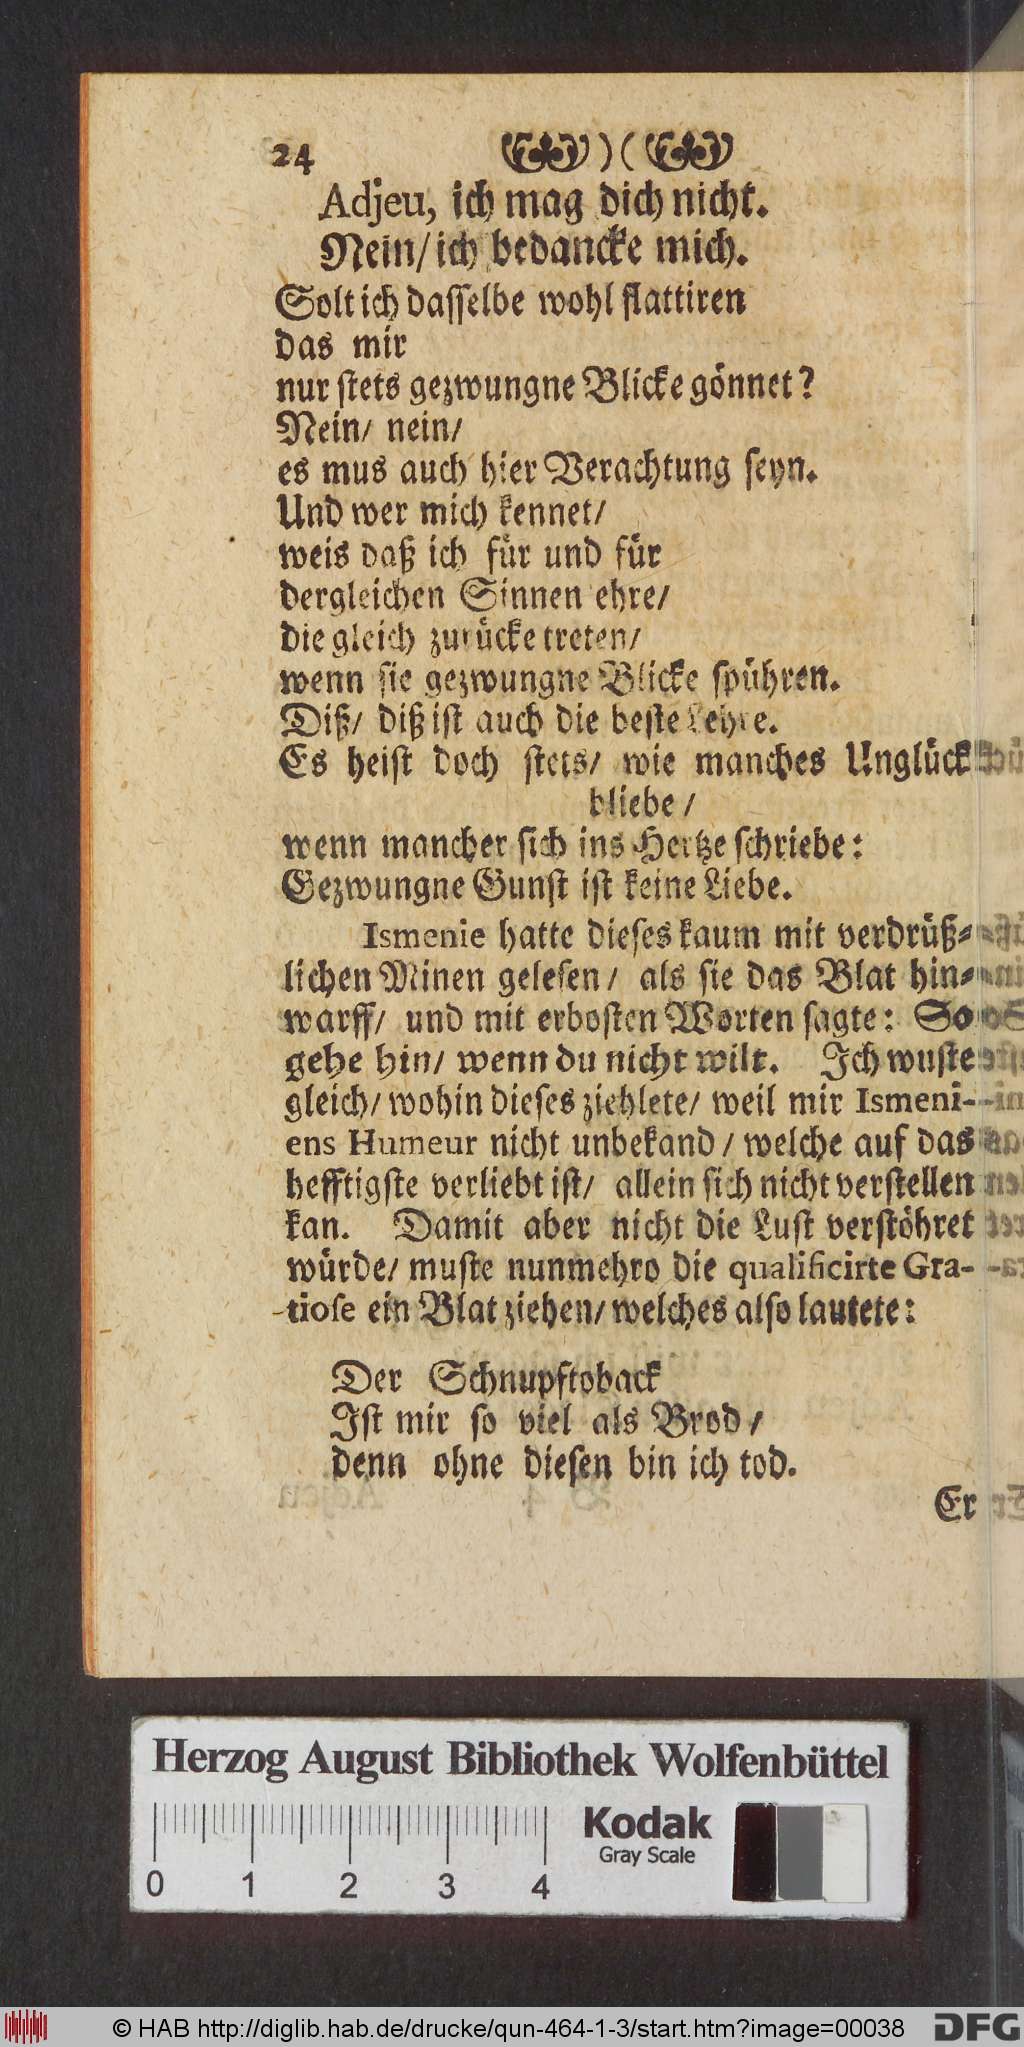 24 )(
Adjeu, ich mag dich nicht.
Nein/ ich bedancke mich.
Solt ich dasselbe wohl flattiren
das mir
nur stets gezwungne Blicke gönnet?
Nein/ nein/
es mus auch hier Verachtung seyn.
Und wer mich kennet/
weis daß ich für und für
dergleichen Sinnen ehre/
die gleich zurücke treten/
wenn sie gezwungne Blicke spühren.
Diß/ diß ist auch die beste Lehre.
Es heist doch stets/ wie manches Unglück
bliebe/
wenn mancher sich ins Hertze schriebe:
Gezwungne Gunst ist keine Liebe.
Ismenie hatte dieses kaum mit verdrüß-
lichen Minen gelesen/ als sie das Blat hin-
warff/ und mit erbosten Worten sagte: So
gehe hin/ wenn du nicht wilt. Ich wuste
gleich/ wohin dieses ziehlete/ weil mir Ismeni-
ens Humeur nicht unbekand/ welche auf das
hefftigste verliebt ist/ allein sich nicht verstellen
kan. Damit aber nicht die Lust verstöhret
würde/ muste nunmehro die qualificirte Gra-
tiose ein Blat ziehen/ welches also lautete:
Der Schnupftoback
Ist mir so viel als Brod/
denn ohne diesen bin ich tod.
Er
Herzog August Bibliothek Wolfenbüttel
Kodak
Gray Scale
0 1 2 3 4
© HAB http://diglib.hab.de/drucke/qun-464-1-3/start.htm?image=00038
DFG